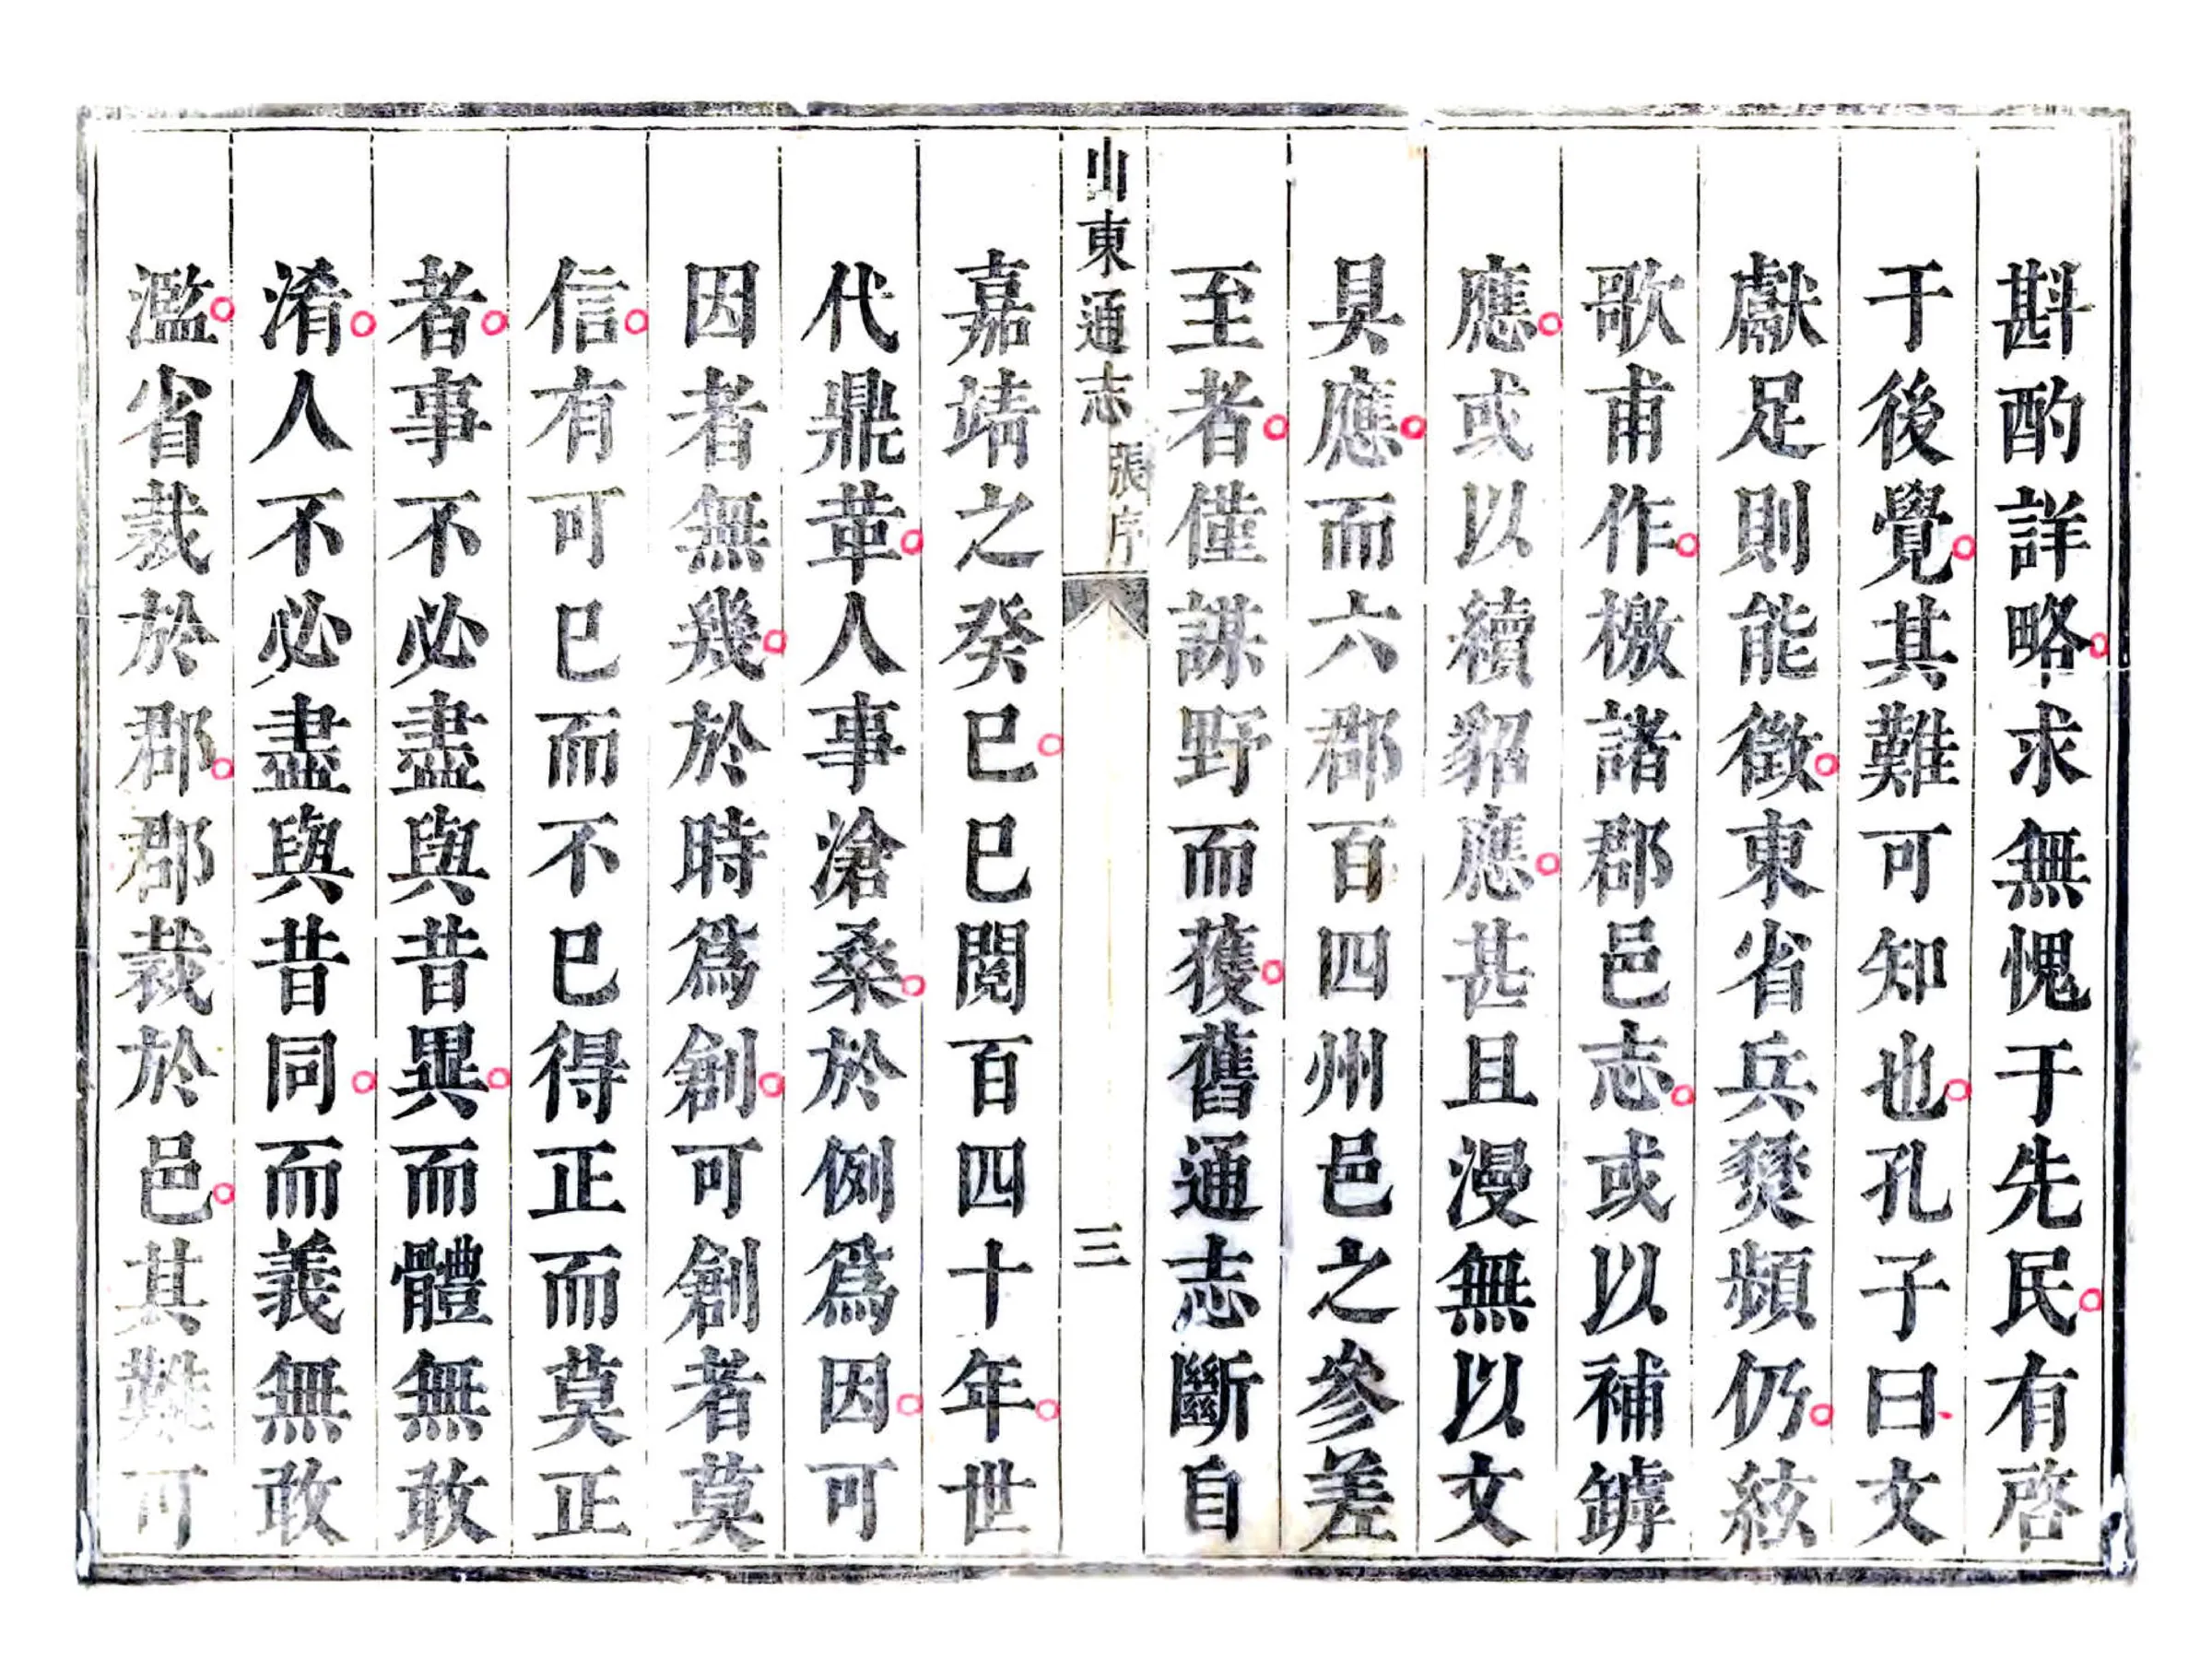 斟酌詳略求無愧于先民有啓
于後覺其難可知也孔子曰文
獻足則能徵東省兵燹頻仍絃
歌甫作檄諸郡邑志或以補罅
應或以續貂應甚且漫無以文
具應而六郡百四州邑之參差
至者僅謀野而獲舊通志斷自
山東通志
張序
三
嘉靖之癸巳巳閱百四十年世
代鼎革人事滄桑於例爲因可
因者無幾於時爲創可創者莫
信有可巳而不巳得正而莫正
者事不必盡與昔異而體無敢
淆人不必盡與昔同而義無敢
濫省裁於郡郡裁於邑其難可